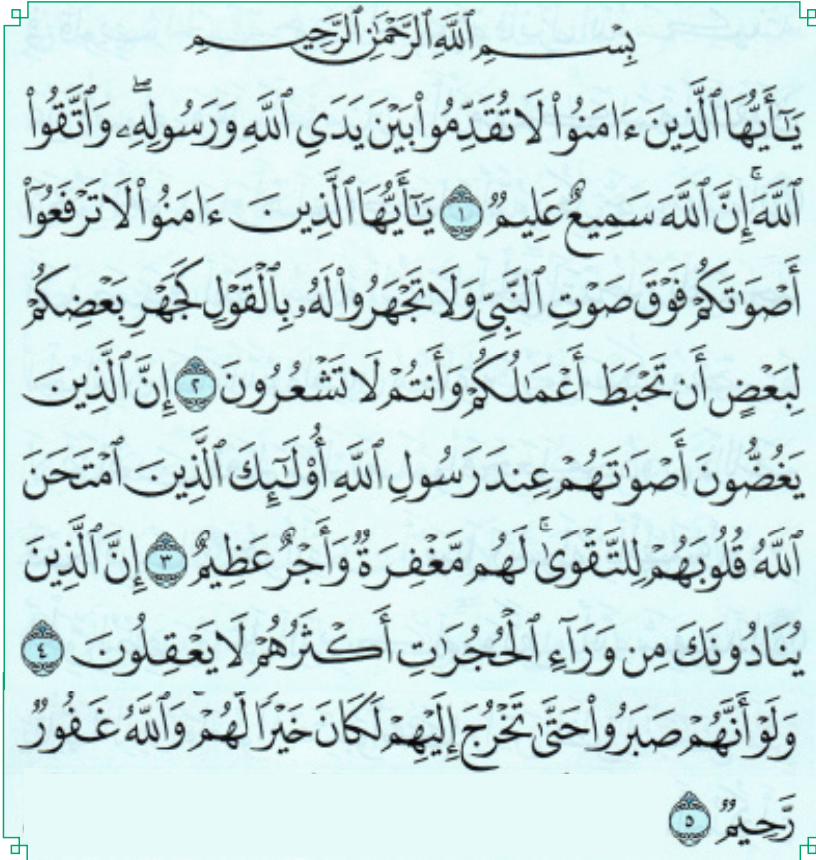 بِسْمِ ٱللَّهِ ٱلرَّحْمَٰنِ ٱلرَّحِيمِ
يَٰٓأَيُّهَا ٱلَّذِينَ ءَامَنُوا۟ لَا تُقَدِّمُوا۟ بَيْنَ يَدَىِ ٱللَّهِ وَرَسُولِهِۦۖ وَٱتَّقُوا۟
ٱللَّهَۚ إِنَّ ٱللَّهَ سَمِيعٌ عَلِيمٌ ١ يَٰٓأَيُّهَا ٱلَّذِينَ ءَامَنُوا۟ لَا تَرْفَعُوٓا۟
أَصْوَٰتَكُمْ فَوْقَ صَوْتِ ٱلنَّبِىِّ وَلَا تَجْهَرُوا۟ لَهُۥ بِٱلْقَوْلِ كَجَهْرِ بَعْضِكُمْ
لِبَعْضٍ أَن تَحْبَطَ أَعْمَٰلُكُمْ وَأَنتُمْ لَا تَشْعُرُونَ ٢ إِنَّ ٱلَّذِينَ
يَغُضُّونَ أَصْوَٰتَهُمْ عِندَ رَسُولِ ٱللَّهِ أُو۟لَٰٓئِكَ ٱلَّذِينَ ٱمْتَحَنَ
ٱللَّهُ قُلُوبَهُمْ لِلتَّقْوَىٰۚ لَهُم مَّغْفِرَةٌ وَأَجْرٌ عَظِيمٌ ٣ إِنَّ ٱلَّذِينَ
يُنَادُونَكَ مِن وَرَآءِ ٱلْحُجُرَٰتِ أَكْثَرُهُمْ لَا يَعْقِلُونَ ٤
وَلَوْ أَنَّهُمْ صَبَرُوا۟ حَتَّىٰ تَخْرُجَ إِلَيْهِمْ لَكَانَ خَيْرًا لَّهُمْ وَٱللَّهُ غَفُورٌ
رَّحِيمٌ ٥